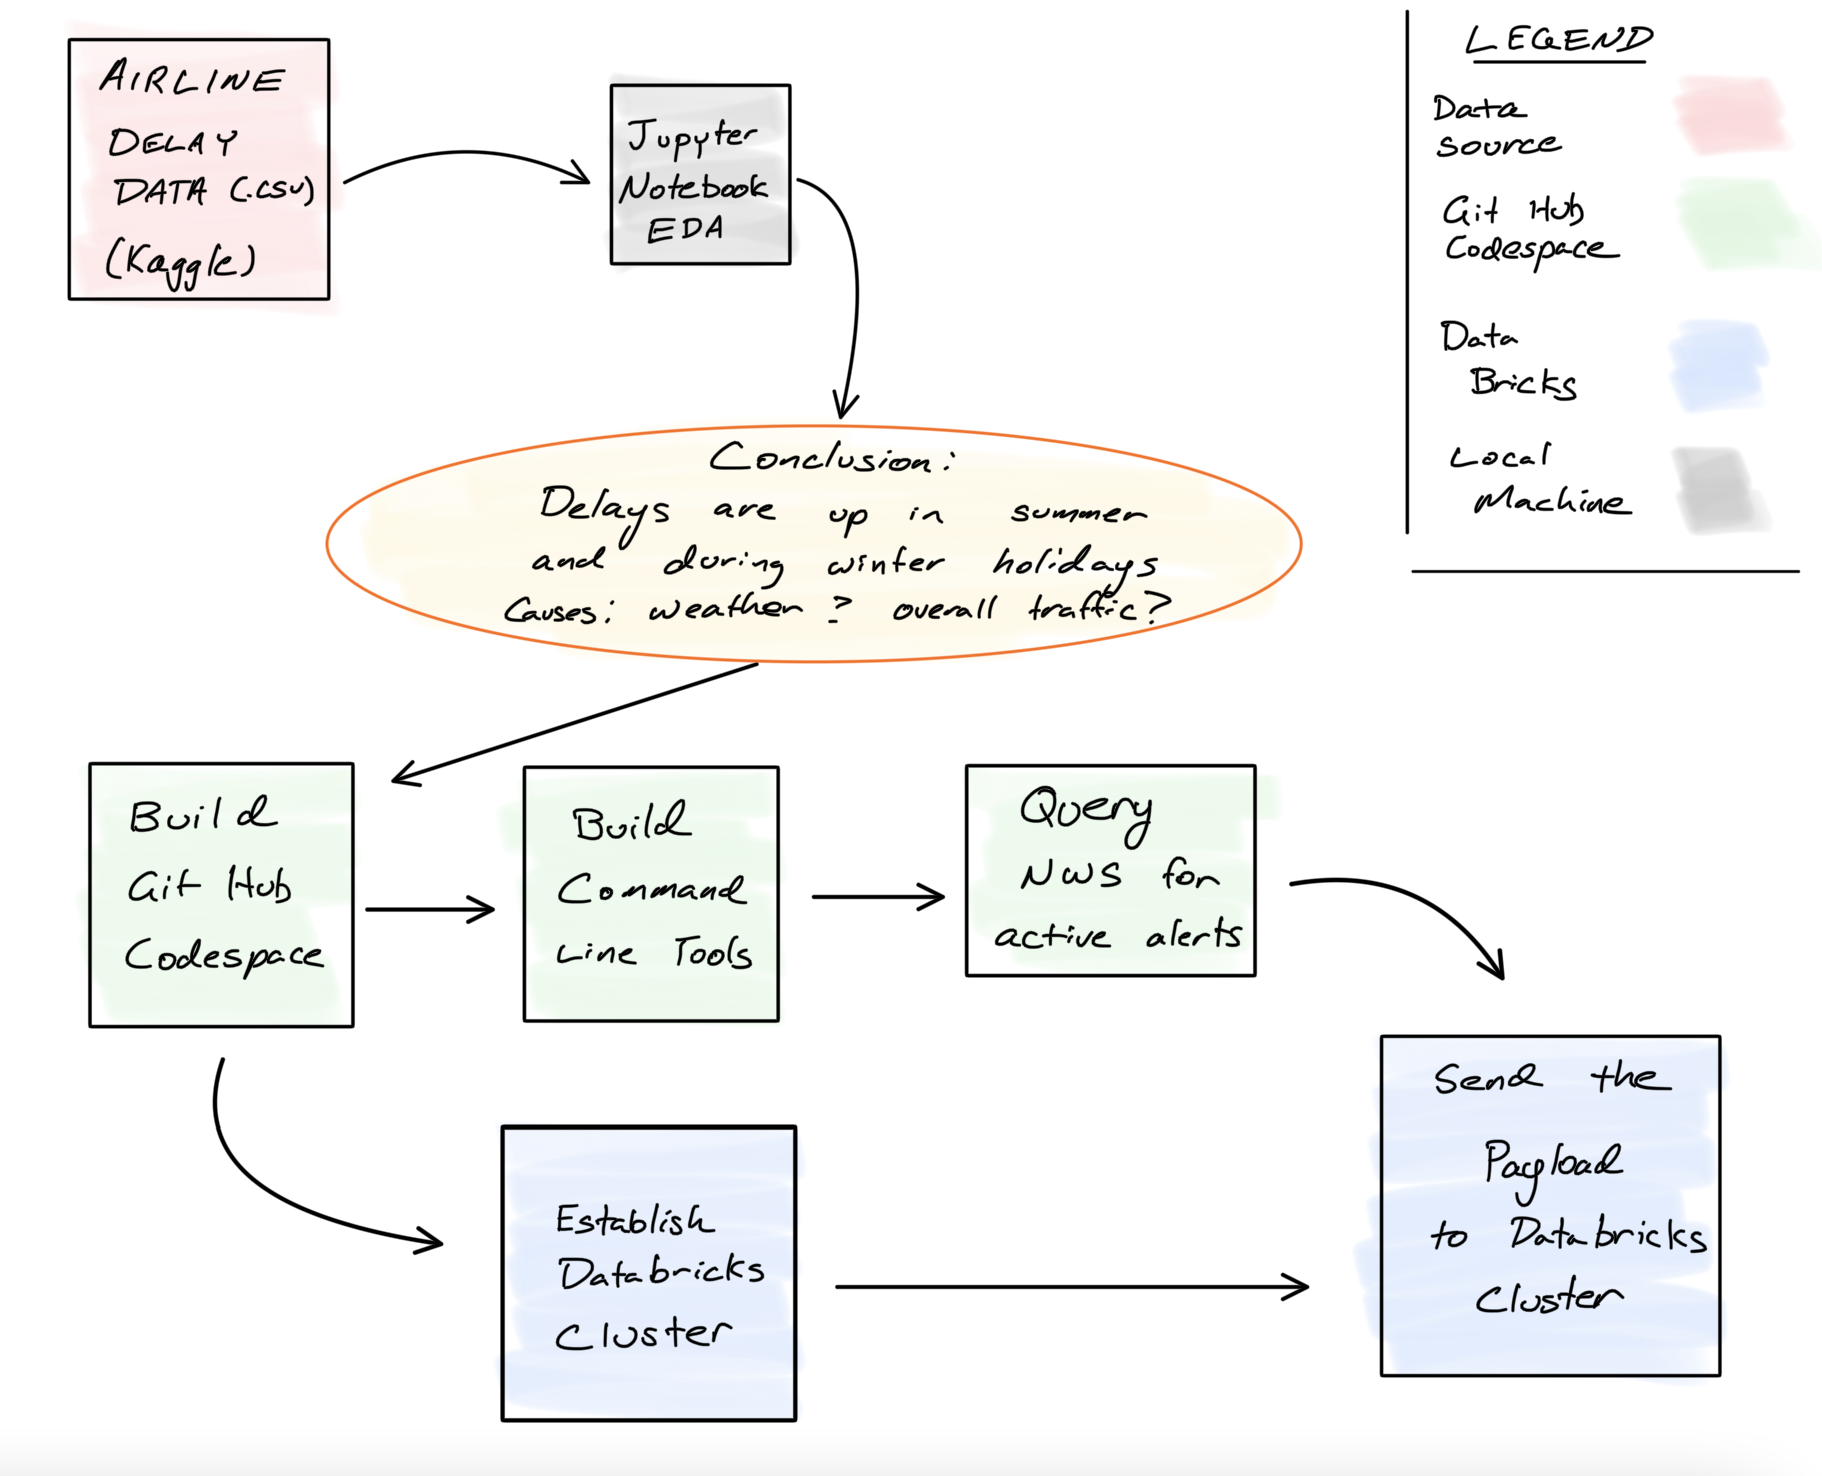 AIRLINE
DELAY
DATA (.csv)
(Kaggle)
Jupyter
Notebook
EDA
LEGEND
Data
Source
Git Hub
Codespace
Data
Bricks
Local
Machine
Conclusion:
Delays are up in summer
and during winter holidays
Causes: weather? overall traffic?
Build
Git Hub
Codespace
Build
Command
Line Tools
Query
NWS for
active alerts
Establish
Databricks
Cluster
Send the
Payload
to Databricks
Cluster